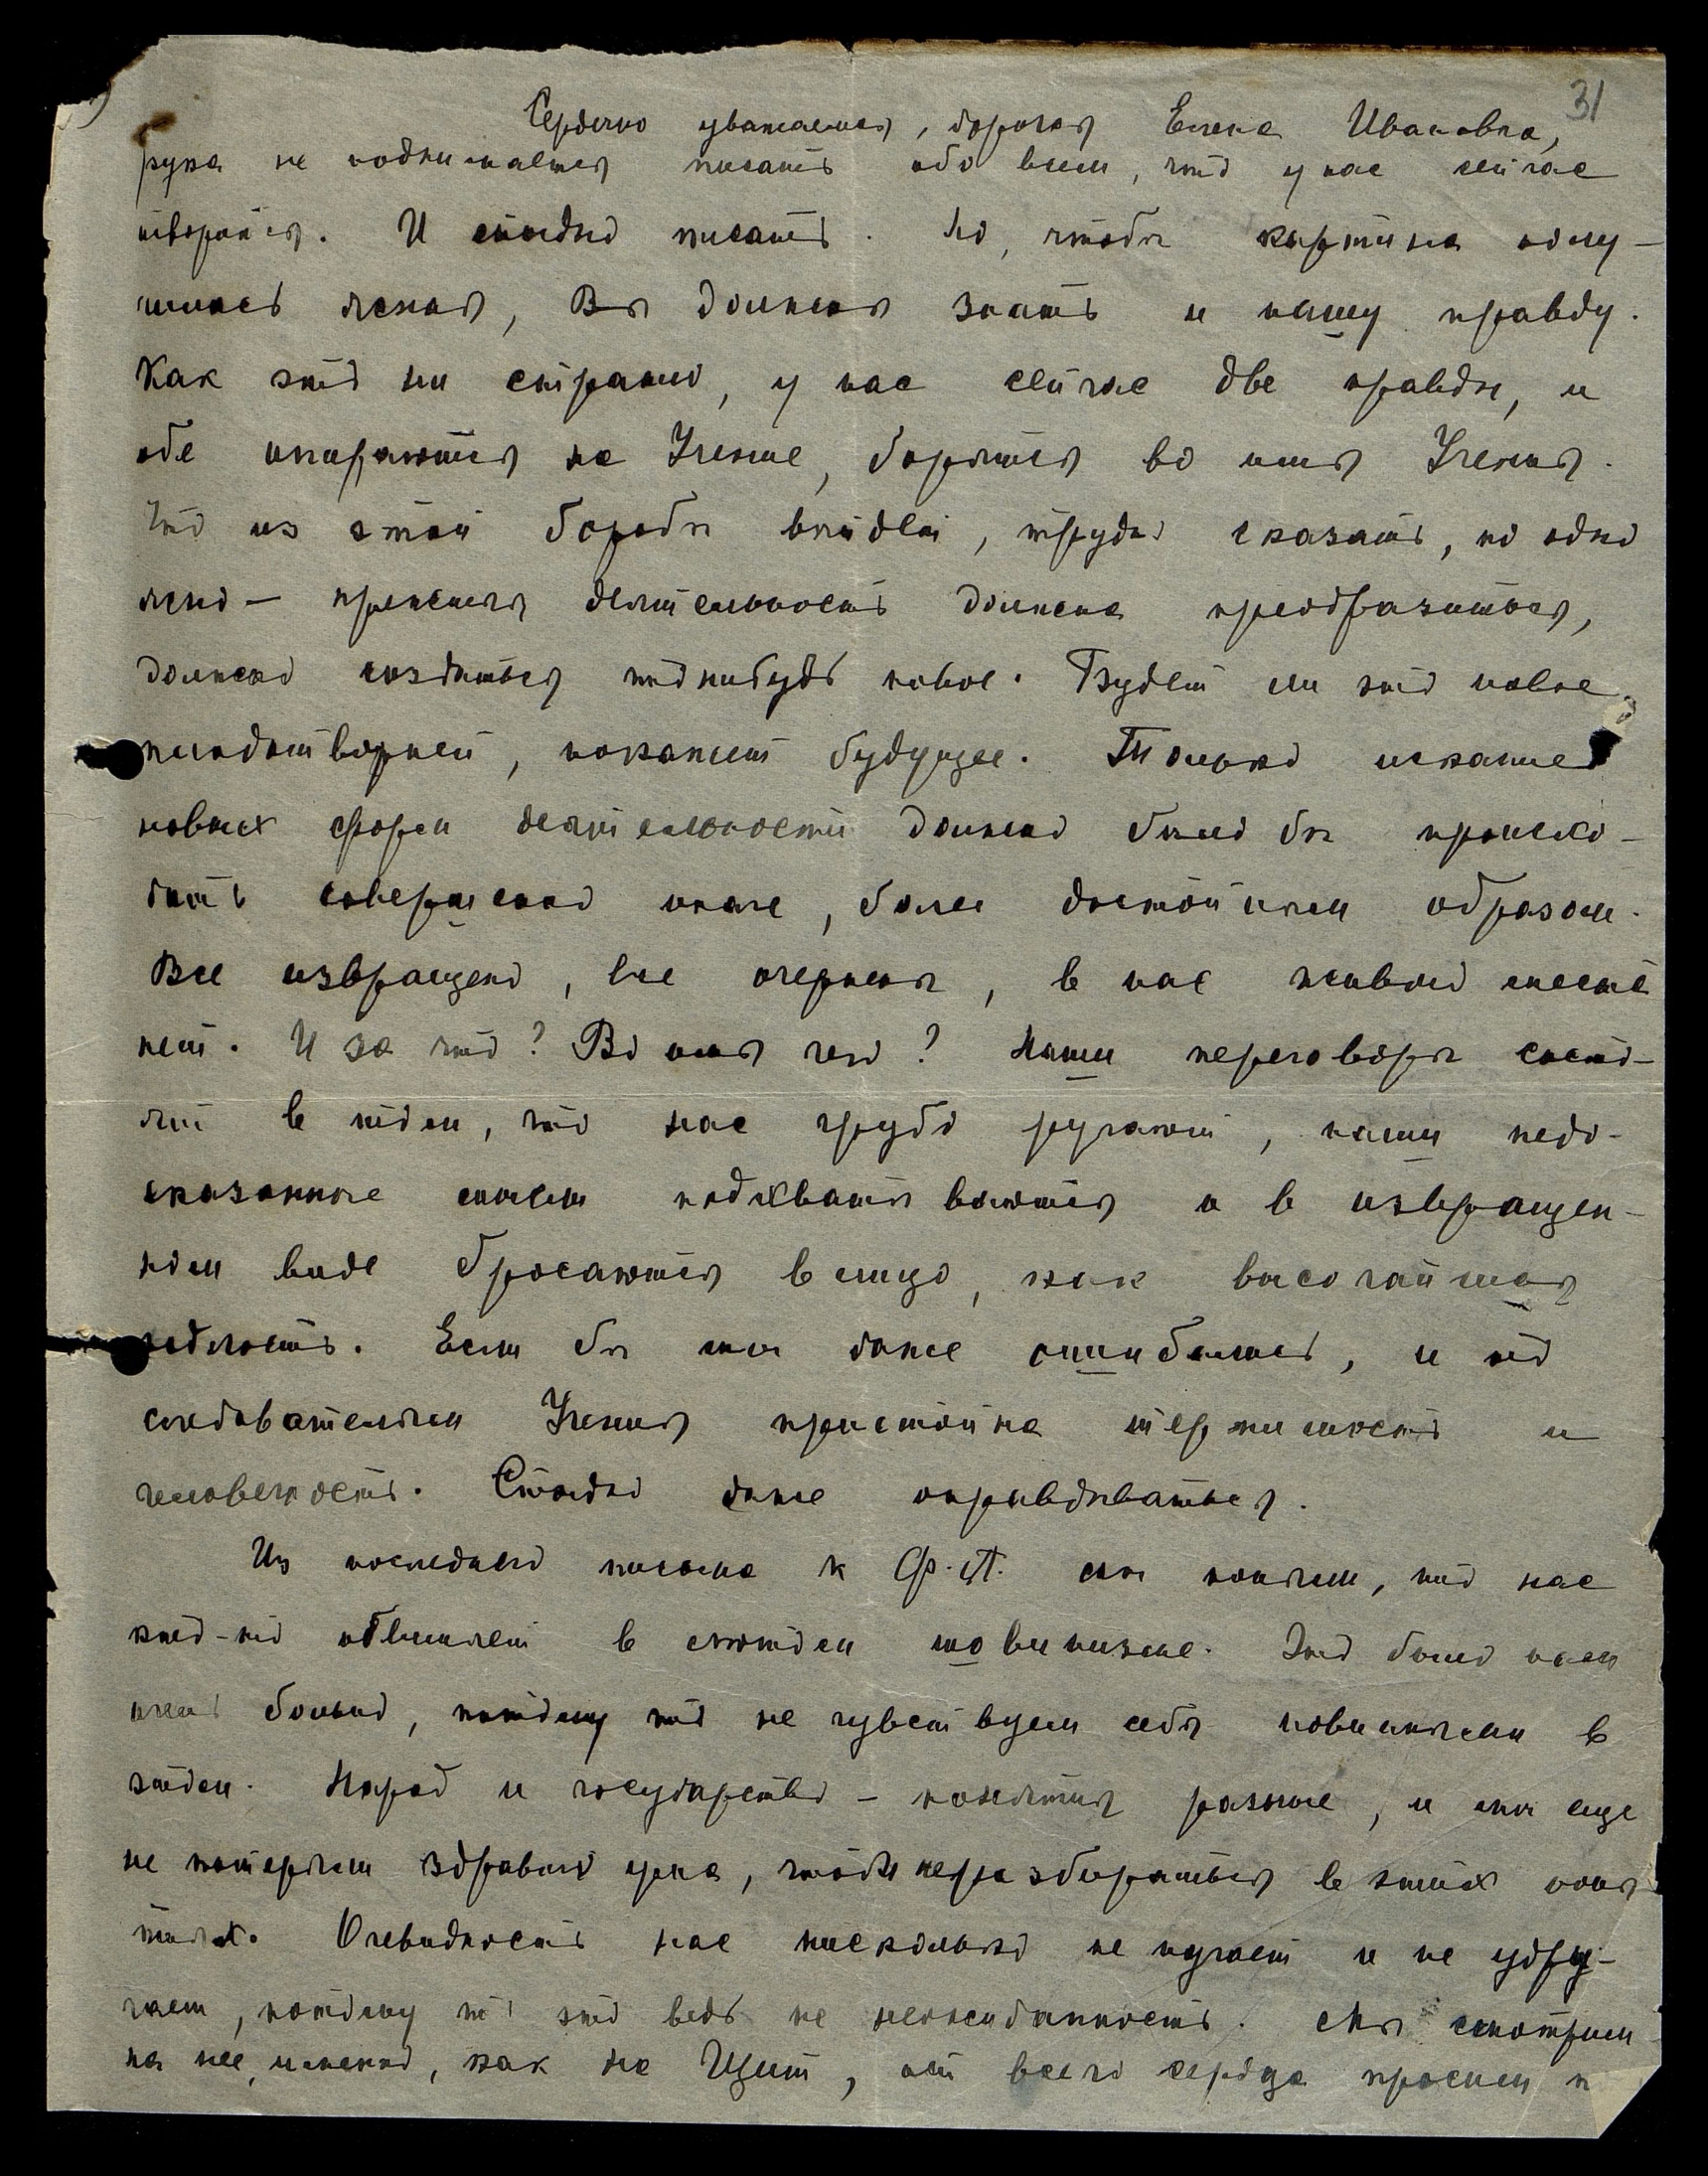 31
Сердечно уважаемая, дорогая Елена Ивановна,
рука не поднимается писать обо всем, что у нас сейчас
творится. И стыдно писать. Но, чтобы картина полу-
чилась ясная, Вы должны знать и нашу правду.
Как это ни странно, у нас сейчас две правды, и
обе опираются на Учение, борются во имя Учения.
Что из этой борьбы выйдет, трудно сказать, но одно
ясно — прежняя деятельность должна преобразиться,
должно создаться что нибудь новое. Будет ли это новое
плодотворней, покажет будущее. Только искание
новых форм деятельности должно было бы происхо-
дить совершенно иначе, более достойным образом.
Все извращено, все очернены, в нас живого места
нет. И за что? Во имя чего? Наши переговоры состо-
ят в том, что нас грубо ругают, наши недо-
сказанные мысли подхватываются и в извращен-
ном виде бросаются в лицо, как высочайшая
подлость. Если бы мы даже ошибались, и то
следователям Учения пристойна терпимость и
человечность. Стыдно даже оправдываться.
Из последнего письма к Ф.А. мы поняли, что нас
кто-то обвиняет в лютом шовинизме. Это было нам
очень больно, потому что не чувствуем себя повинными в
этом. Народ и государство — понятия разные, и мы еще
не потеряли здравый ум, чтобы не разбираться в этих поня-
тиях. Очевидность нас нисколько не пугает и не удру-
чает, потому что это ведь не неожиданность. Мы смотрим
на нее, именно, как на Щит, от всего сердца просим п